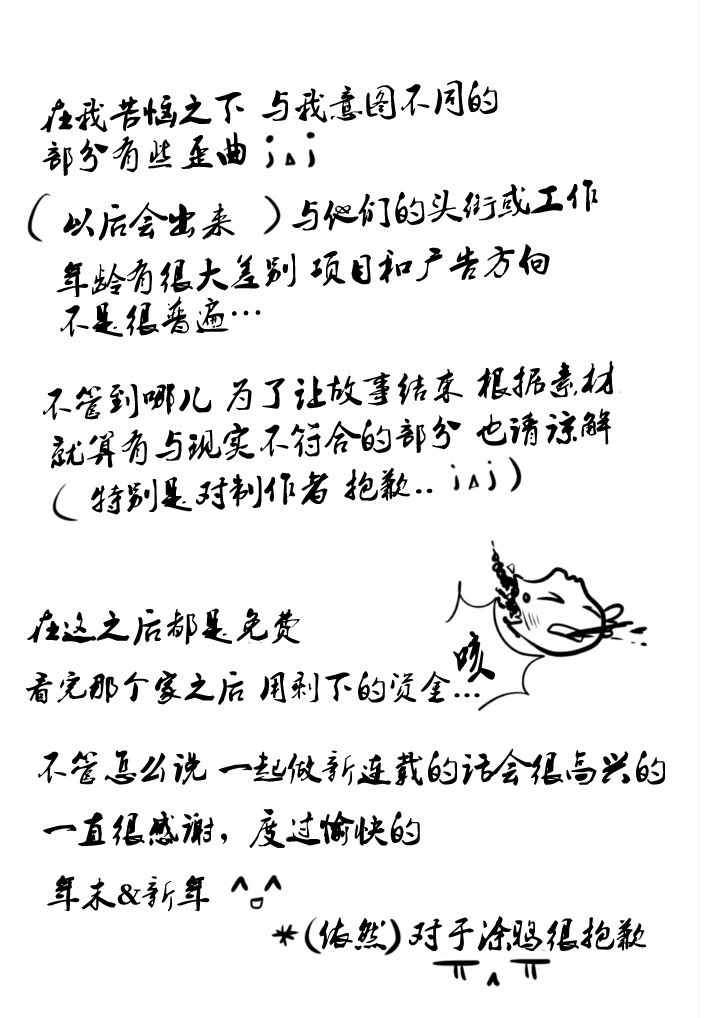 在我苦恼之下 与我意图不同的
部分有些歪曲 ;ㅅ;
(以后会出来 )与他们的头衔或工作
年龄有很大差别 项目和广告方向
不是很普遍…
不管到哪儿 为了让故事结束 根据素材
就算有与现实不符合的部分 也请谅解
(特别是对制作者 抱歉.. ;ㅅ;)
在这之后都是免费
看完那个家之后 用剩下的资金...
咳
不管怎么说 一起做新连载的话会很高兴的
一直很感谢，度过愉快的
年末&新年 ^ㅁ^
*(依然)对于涂鸦很抱歉
ㅠㅅㅠ